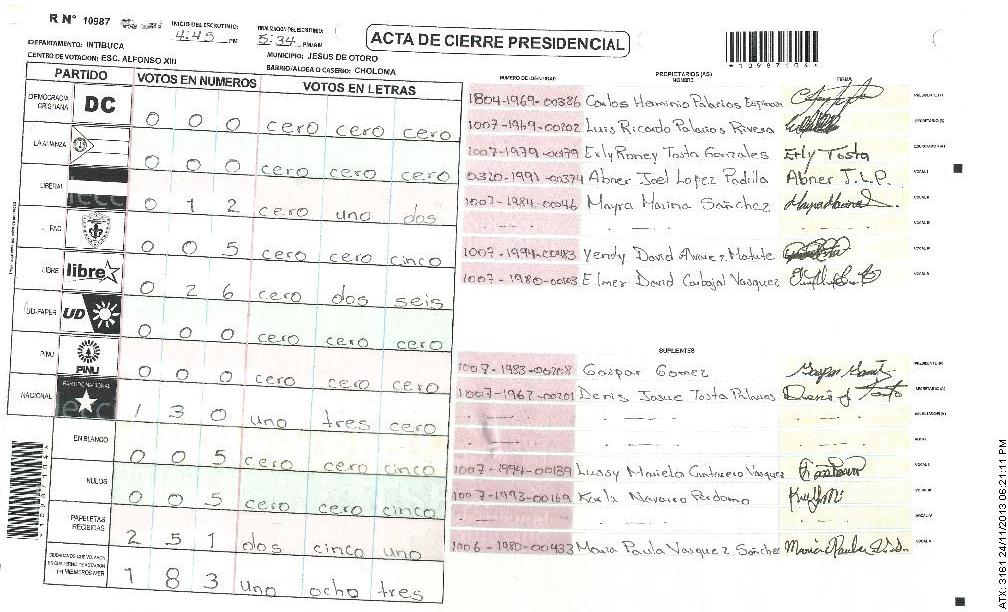 R N° 10987
INICIO DEL ESCRUTINIO: 4:45 PM
FINALIZACION DEL ESCRUTINIO: 5:34 PM/AM
ACTA DE CIERRE PRESIDENCIAL
DEPARTAMENTO: INTIBUCA
MUNICIPIO: JESUS DE OTORO
CENTRO DE VOTACION: ESC. ALFONSO XIII
BARRIO/ALDEA O CASERIO: CHOLOMA
PARTIDO VOTOS EN NUMEROS VOTOS EN LETRAS
DEMOCRACIA CRISTIANA DC 0 0 0 cero cero cero
LA ALIANZA 0 0 0 cero cero cero
LIBERAL 0 1 2 cero uno dos
PAC 0 0 5 cero cero cinco
LIBRE libre 0 2 6 cero dos seis
UD-FAPER UD 0 0 0 cero cero cero
PINU PINU 0 0 0 cero cero cero
NACIONAL PARTIDO NACIONAL 1 3 0 uno tres cero
EN BLANCO 0 0 5 cero cero cinco
NULOS 0 0 5 cero cero cinco
PAPELETAS RECIBIDAS 2 5 1 dos cinco uno
1 8 3 uno ocho tres
NUMERO DE IDENTIDAD PROPIETARIOS (AS) NOMBRE FIRMA
1804-1969-00386 Carlos Herminio Palacios Espinoza
1007-1969-00202 Luis Ricardo Palacios Rivera
1007-1979-00179 Erly Roney Tosta Gonzales Erly Tosta
0320-1991-00374 Abner Joel Lopez Padilla Abner J.L.P.
1007-1984-00046 Mayra Marina Sanchez
1007-1994-00483 Yendy David Alvarez Matute
1007-1980-00103 Elmer David Carbajal Vasquez
SUPLENTES
1007-1983-00208 Gaspar Gomez
1007-1967-00201 Denis Josue Tosta Palacios
1007-1994-00189 Lussy Mariela Contrerero Vasquez
1007-1993-00169 Karla Navarro Perdomo
1006-1980-00433 Maria Paula Vasquez Sanchez
ATX: 3161 24/11/2013 06:21:11 PM